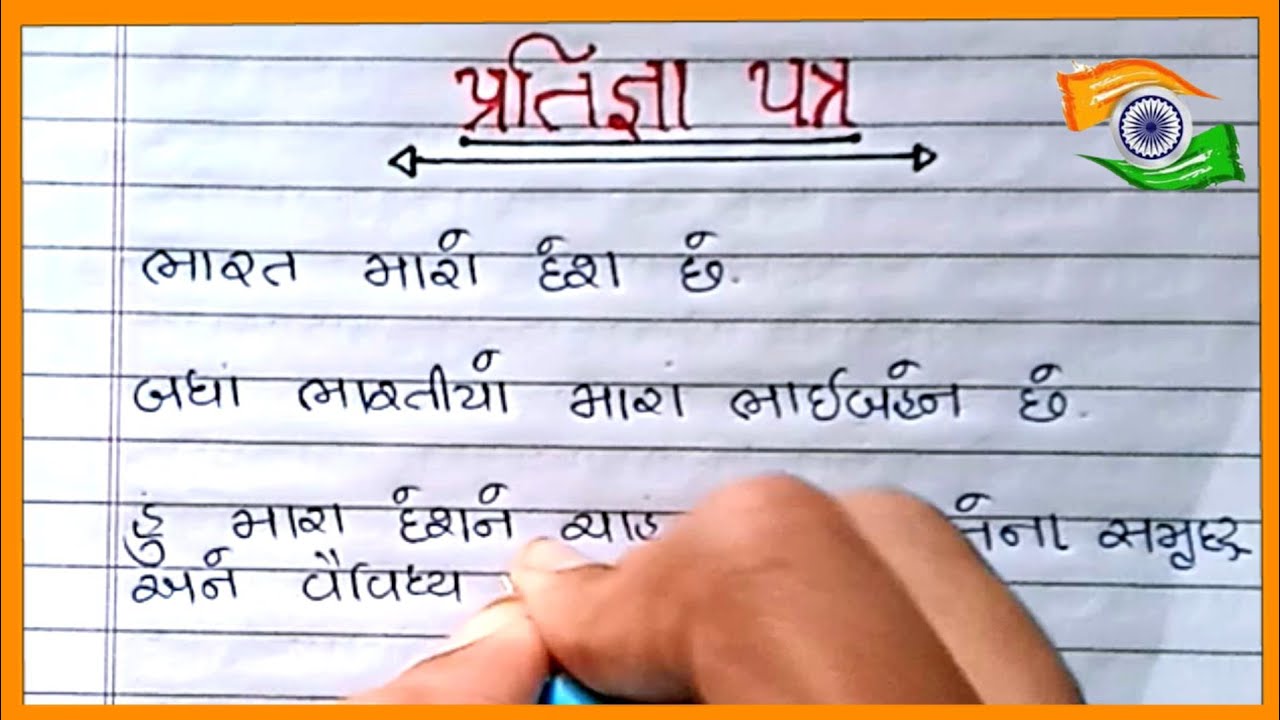 પ્રતિજ્ઞા પત્ર
ભારત મારો દેશ છે.
બધાં ભારતીયો મારાં ભાઈબહેન છે.
હું મારા દેશને ચાહું તેના સમૃદ્ધ
અને વૈવિધ્ય